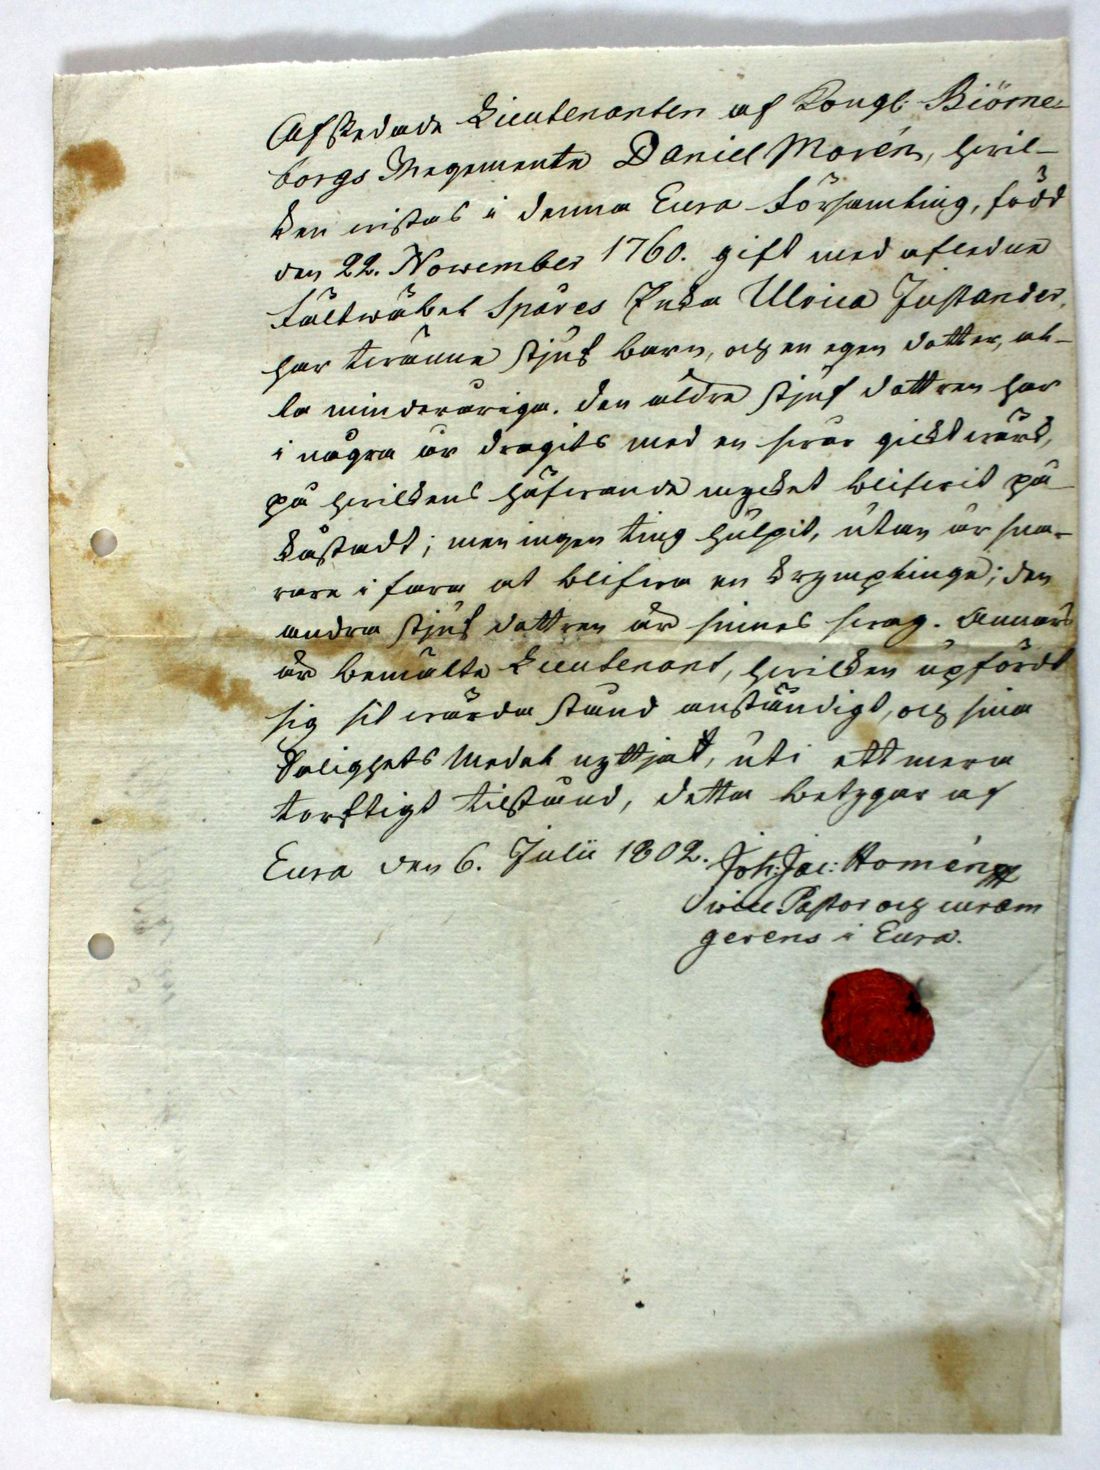 Afskedade Lieutenanten af Kongl. Biörne-
borgs Regemente Daniel Morén, hvil-
ken vistas i denna Eura Församling, född
den 22. November 1760. gift med afledne
Fältwäbel Spåres Enka Ulrica Justander,
har tvänne stjuf barn, och en egen dotter, al-
la minderåriga. den äldre stjuf dottren har
i några år dragits med en svår gicktvärk,
på hvilkens häfvande mycket blifvit på-
kåstadt; men ingen ting hulpit, utan är sna-
rare i fara at blifva en krympling; den
andra stjuf dottren är sinnes svag. Annars
är bemälte Lieutenant, hvilken upfördt
sig sit värda stånd anständigt, och sina
Salighets Medel nyttjat, uti ett mera
torftigt tilstånd, detta betygar af
Eura den 6. Julii 1802. Joh: Jac: Homén
vice Pastor och curam
gerens i Eura.